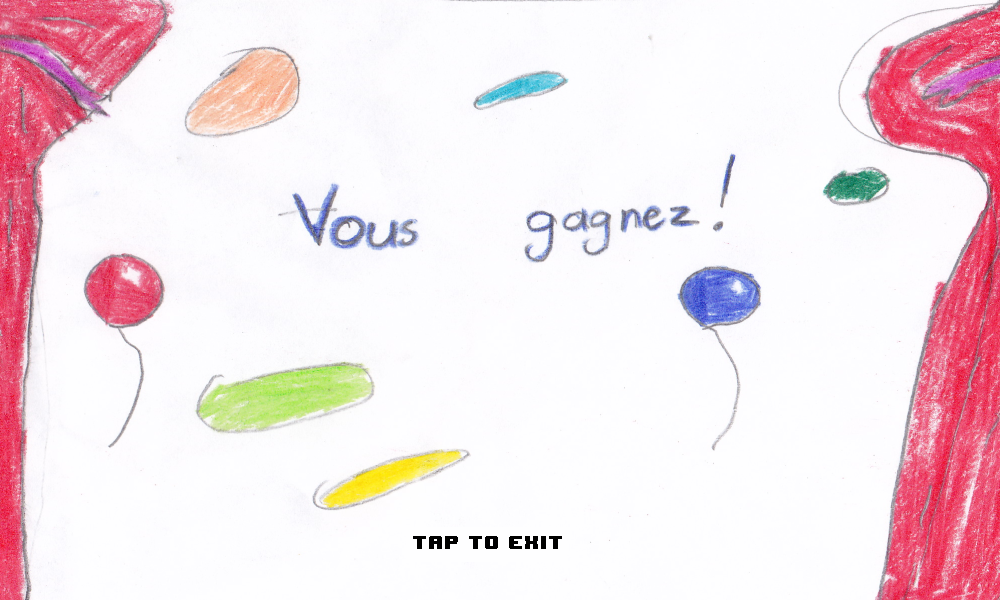 Vous gagnez!
TAP TO EXIT